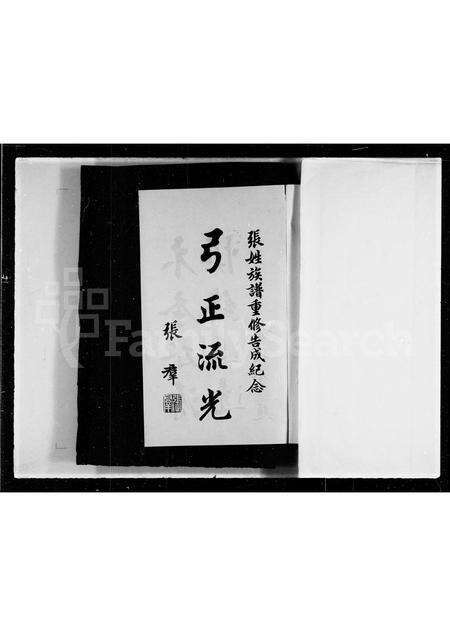 張姓族譜重修告成紀念
弓正流光
張群
FamilySearch